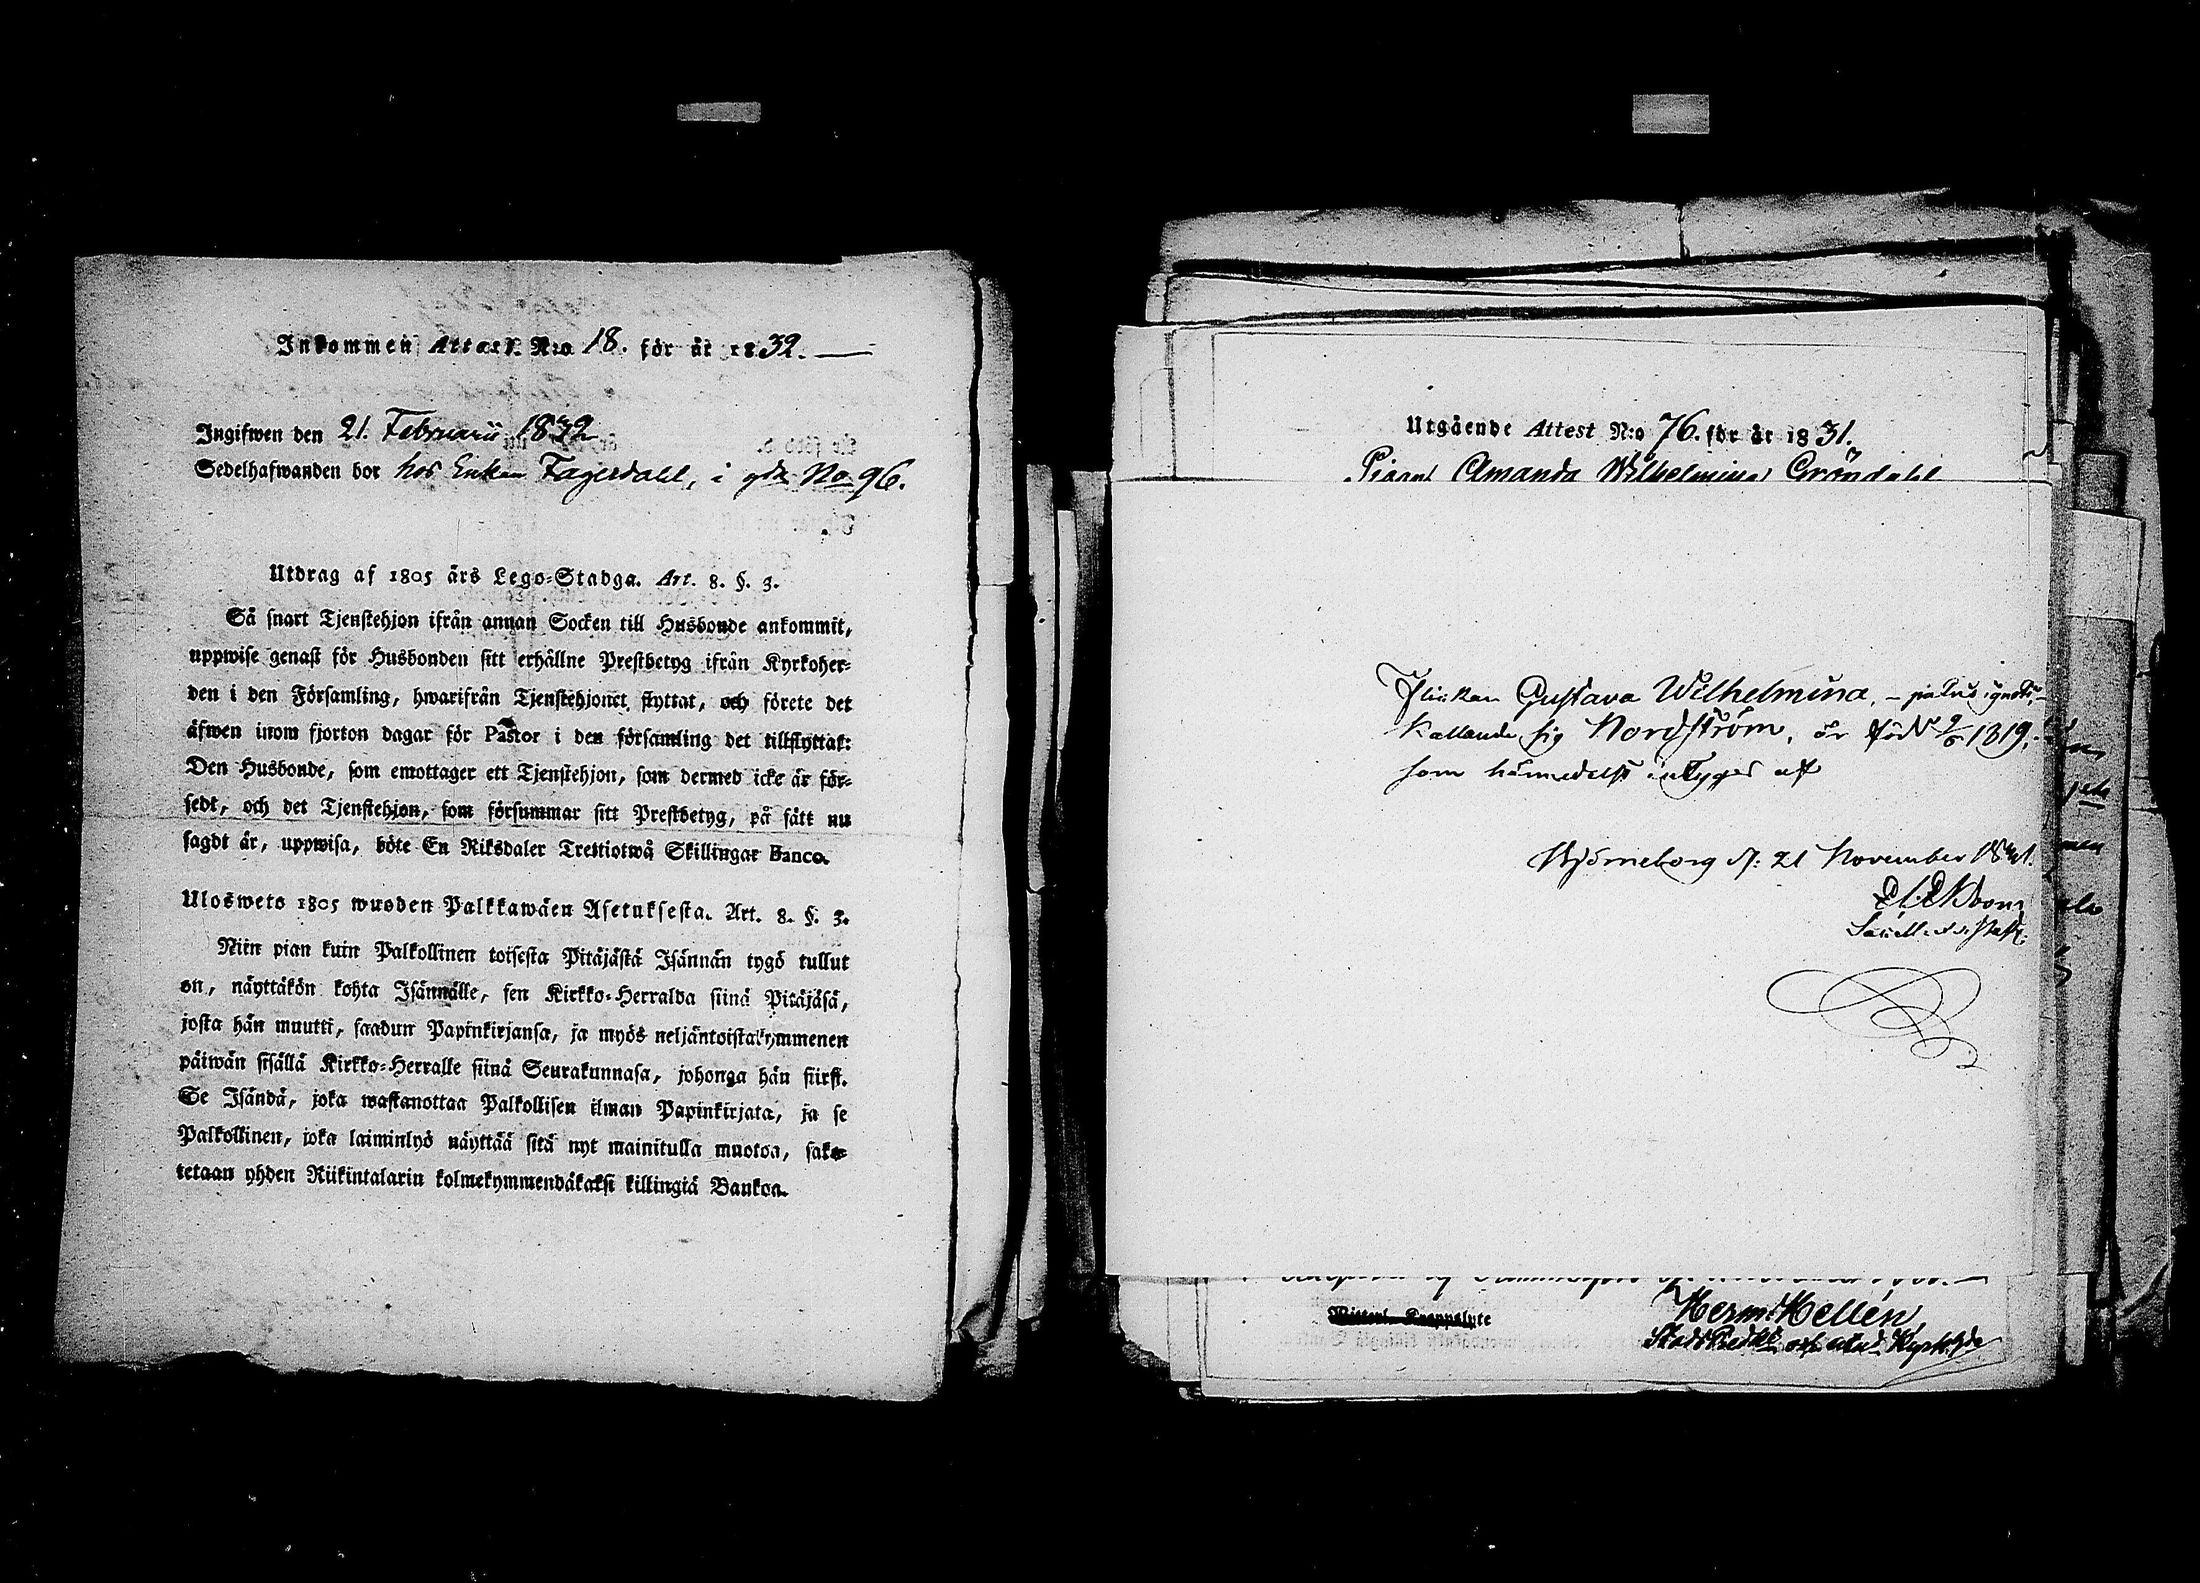 Inkommen Attest N:o 18. för år 1832.
Ingifwen den 21. Februarii 1832
Sedelhafwanden bor hos Enkan Fagerdahl, i gdn No 96.
Utdrag af 1805 års Lego-Stadga. Art. 8. §. 3.
Så snart Tjenstehjon ifrån annan Socken till Husbonde ankommit,
uppwise genast för Husbonden sitt erhållne Prestbetyg ifrån Kyrkoher-
den i den Församling, hwarifrån Tjenstehjonet flyttat, och förete det
äfwen inom fjorton dagar för Pastor i den församling det tillflyttat:
Den Husbonde, som emottager ett Tjenstehjon, som dermed icke är för-
sedt, och det Tjenstehjon, som försummar sitt Prestbetyg, på sätt nu
sagdt är, uppwisa, böte En Riksdaler Trettiotwå Skillingar Banco.
Ulosweto 1805 wuoden Palkkawäen Asetuksesta. Art. 8. §. 3.
Niin pian kuin Palkollinen toisesta Pitäjästä Isännän tygö tullut
on, näyttäkön kohta Isännälle, sen Kirkko-Herralda siinä Pitäjäsä,
josta hän muutti, saadun Papinkirjansa, ja myös neljäntoistakymmenen
päiwän sisällä Kirkko-Herralle siinä Seurakunnasa, johonga hän siirst.
Se Isändä, joka wastanottaa Palkollisen ilman Papinkirjata, ja se
Palkollinen, joka laiminlyö näyttää sitä nyt mainitulla muotoa, sako-
tetaan yhden Riikintalarin kolmekymmendäkaksi killingiä Bankoa.
Utgående Attest N:o 76. för år 1831.
Pigan Amanda Wilhelmina Gröndahl
Flickan Gustava Wilhelmina,
kallande sig Nordström, är född 2/6 1819,
som härmedelst intygas af
Björneborg d. 21 November 1841.
Herm: Hellén,